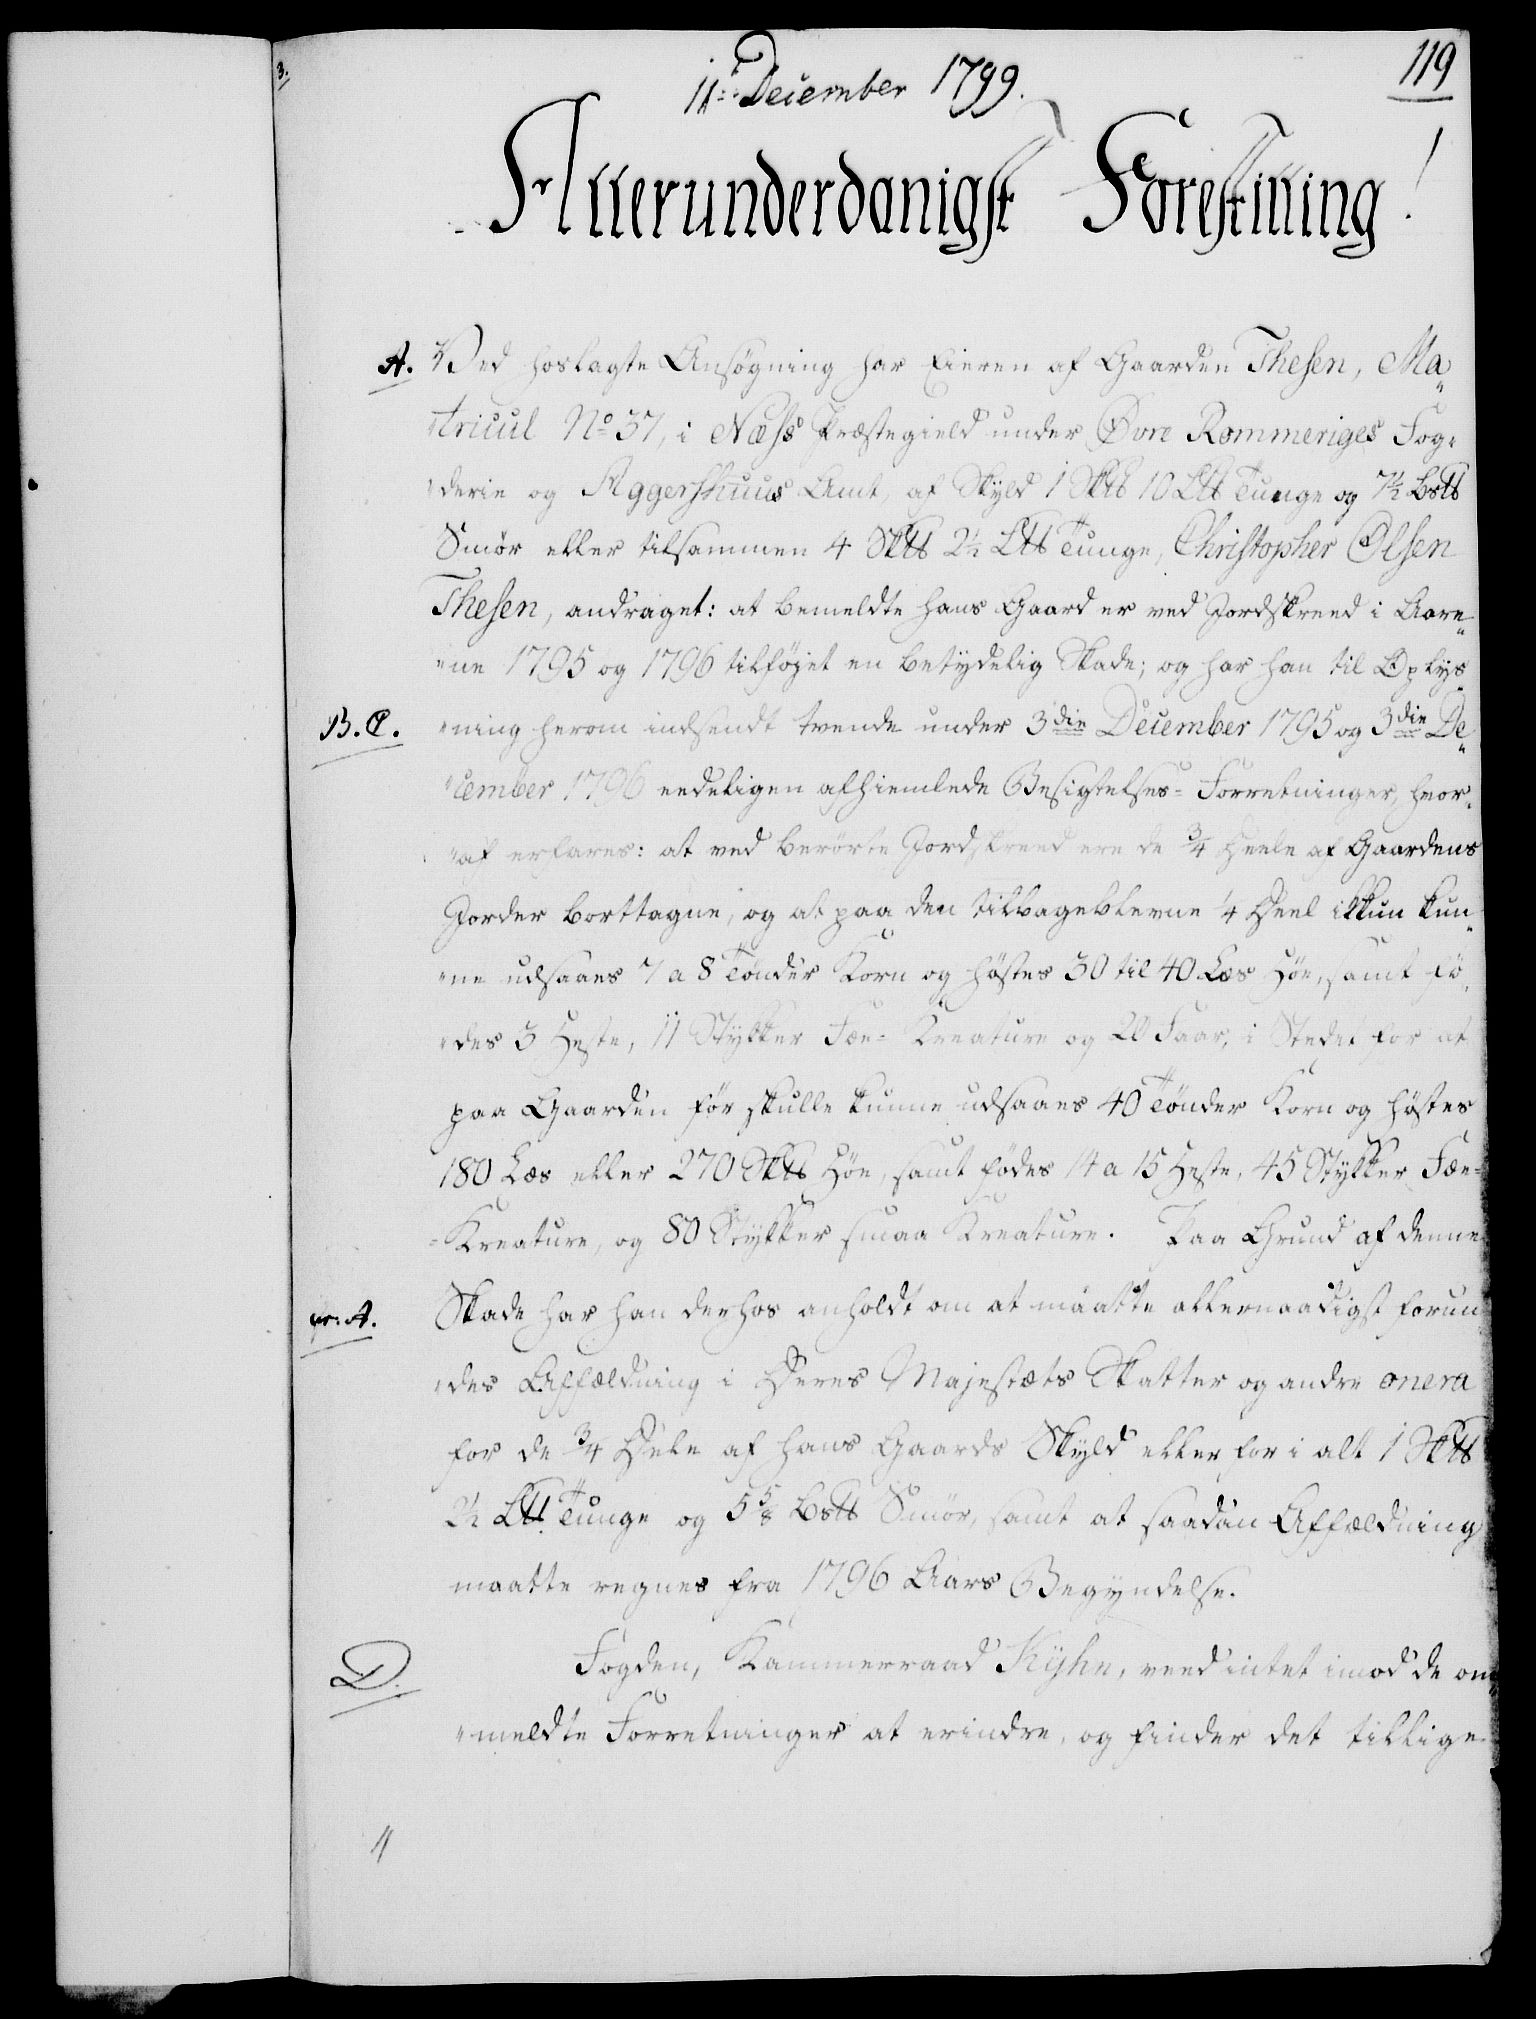 119
11te December 1799.
Allerunderdanigst Forestilling!
A. Ved hoslagte Ansøgning har Eieren af Gaarden Thesen, Ma„
„tricul No 37, i Næss Præstegield under Øvre Rommeriges Fog„
„derie og Aggershuus Amt, af Skyld 1 Sktt 10 Ltt Tunge og 7½ Bstt
Smør eller tilsammen 4 Sktt 2½ Ltt Tunge, Christopher Olsen
Thesen, andraget: at bemeldte hans Gaard er ved Jordskreed i Aare„
„ne 1795 og 1796 tilføjet en betydelig Skade; og har han til Oplys„
B. C. „ning herom indsendt tvende under 3die December 1795 og 3die De„
„cember 1796 eedeligen afhiemlede Besigtelses-Forretninger, hvor„
„af erfares: at ved berørte Jordskreed ere de ¾ Deele af Gaardens
Jorder borttagne, og at paa den tilbageblevne ¼ Deel ikkun kun„
„ne udsaaes 7 a 8 Tønder Korn og høstes 30 til 40 Læs Høe, samt fø„
„des 3 Heste, 11 Stykker Fæe-Kreature og 20 Faar, i Stedet for at
paa Gaarden før skulle kunne udsaaes 40 Tønder Korn og høstes
180 Læs eller 270 Sktt Høe, samt fødes 14 a 15 Heste, 45 Stykker Fæe-
-Kreature, og 80 Stykker smaa Kreature. Paa Grund af denne
pr: A. Skade har han derhos anholdt om at maatte allernaadigst forun„
„des Affældning i Deres Majestæts Skatter og andre onera
for de ¾ Dele af hans Gaards Skyld eller for i alt 1 Sktt
2½ Ltt Tunge og 5⅝ Bstt Smør, samt at saadan Affældning
maatte regnes fra 1796 Aars Begyndelse.
D. Fogden, Kammerraad Kyhn, veed intet imod de om„
„meldte Forretninger at erindre, og finder det tillige